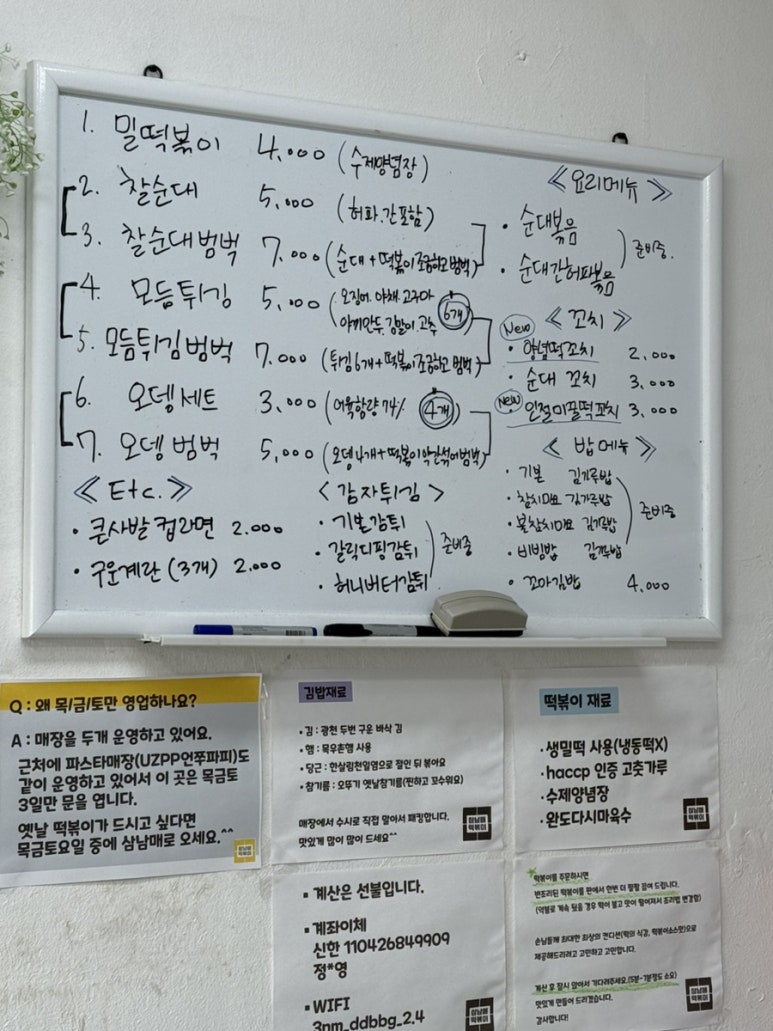 1. 밀떡볶이 4.000 (수제양념장)
2. 찰순대 5.000 (허파.간포함)
3. 찰순대범벅 7.000 (순대+떡볶이조금하고범벅)
4. 모듬튀김 5.000 (오징어.야채.고구마
야끼만두.김말이.고추 6개)
5. 모듬튀김범벅 7.000 (튀김6개+떡볶이조금하고범벅)
6. 오뎅세트 3.000 (어육함량74% 4개)
7. 오뎅범벅 5,000 (오뎅4개+떡볶이약간섞어범벅)
<Etc.>
• 큰사발컵라면 2.000
• 구운계란 (3개) 2.000
<감자튀김>
• 기본감튀
• 갈릭디핑감튀 준비중
• 허니버터감튀
《요리메뉴》
• 순대볶음
• 순대간허파볶음 준비중.
《꼬치》
New
• 양념떡꼬치 2.000
• 순대 꼬치 3.000
New
• 인절미꿀떡꼬치 3.000
《밥메뉴》
• 기본 김가루밥
• 참치마요 김가루밥
• 불참치마요 김가루밥 준비중
• 비빔밥 김가루밥
• 꼬마김밥 4.000
Q : 왜 목/금/토만 영업하나요?
A : 매장을 두개 운영하고 있어요.
근처에 파스타매장(UZPP언쭈파피)도
같이 운영하고 있어서 이 곳은 목금토
3일만 문을 엽니다.
옛날 떡볶이가 드시고 싶다면
목금토요일 중에 삼남매로 오세요.^^
삼남매
떡볶이
김밥재료
• 김 : 광천 두번 구운 바삭 김
• 햄 : 목우촌햄 사용
• 당근 : 한살림천일염으로 절인 뒤 볶아요
• 참기름 : 오뚜기 옛날참기름(찐하고 꼬수워요)
매장에서 수시로 직접 말아서 패킹합니다.
맛있게 많이 많이 드세요^^
삼남매
떡볶이
떡볶이 재료
•생밀떡 사용(냉동떡X)
•haccp 인증 고춧가루
•수제양념장
•완도다시마육수
삼남매
떡볶이
• 계산은 선불입니다.
• 계좌이체
신한 110426849909
정*영
• WIFI
3nm_ddbbg_2.4
삼남매
떡볶이
떡볶이를 주문하시면
반조리된 떡볶이를 판에서 한번 더 팔팔 끓여 드립니다.
(약불로 계속 뒀을 경우 떡이 불고 맛이 떨어져서 조리법 변경함)
손님들께 최대한 최상의 컨디션(떡의 식감, 떡볶이소스맛)으로
제공해드리려고 고민하고 고민합니다.
계산 후 잠시 앉아서 기다려주세요.(5분~7분정도 소요)
맛있게 만들어 드리겠습니다.
감사합니다!
삼남매
떡볶이